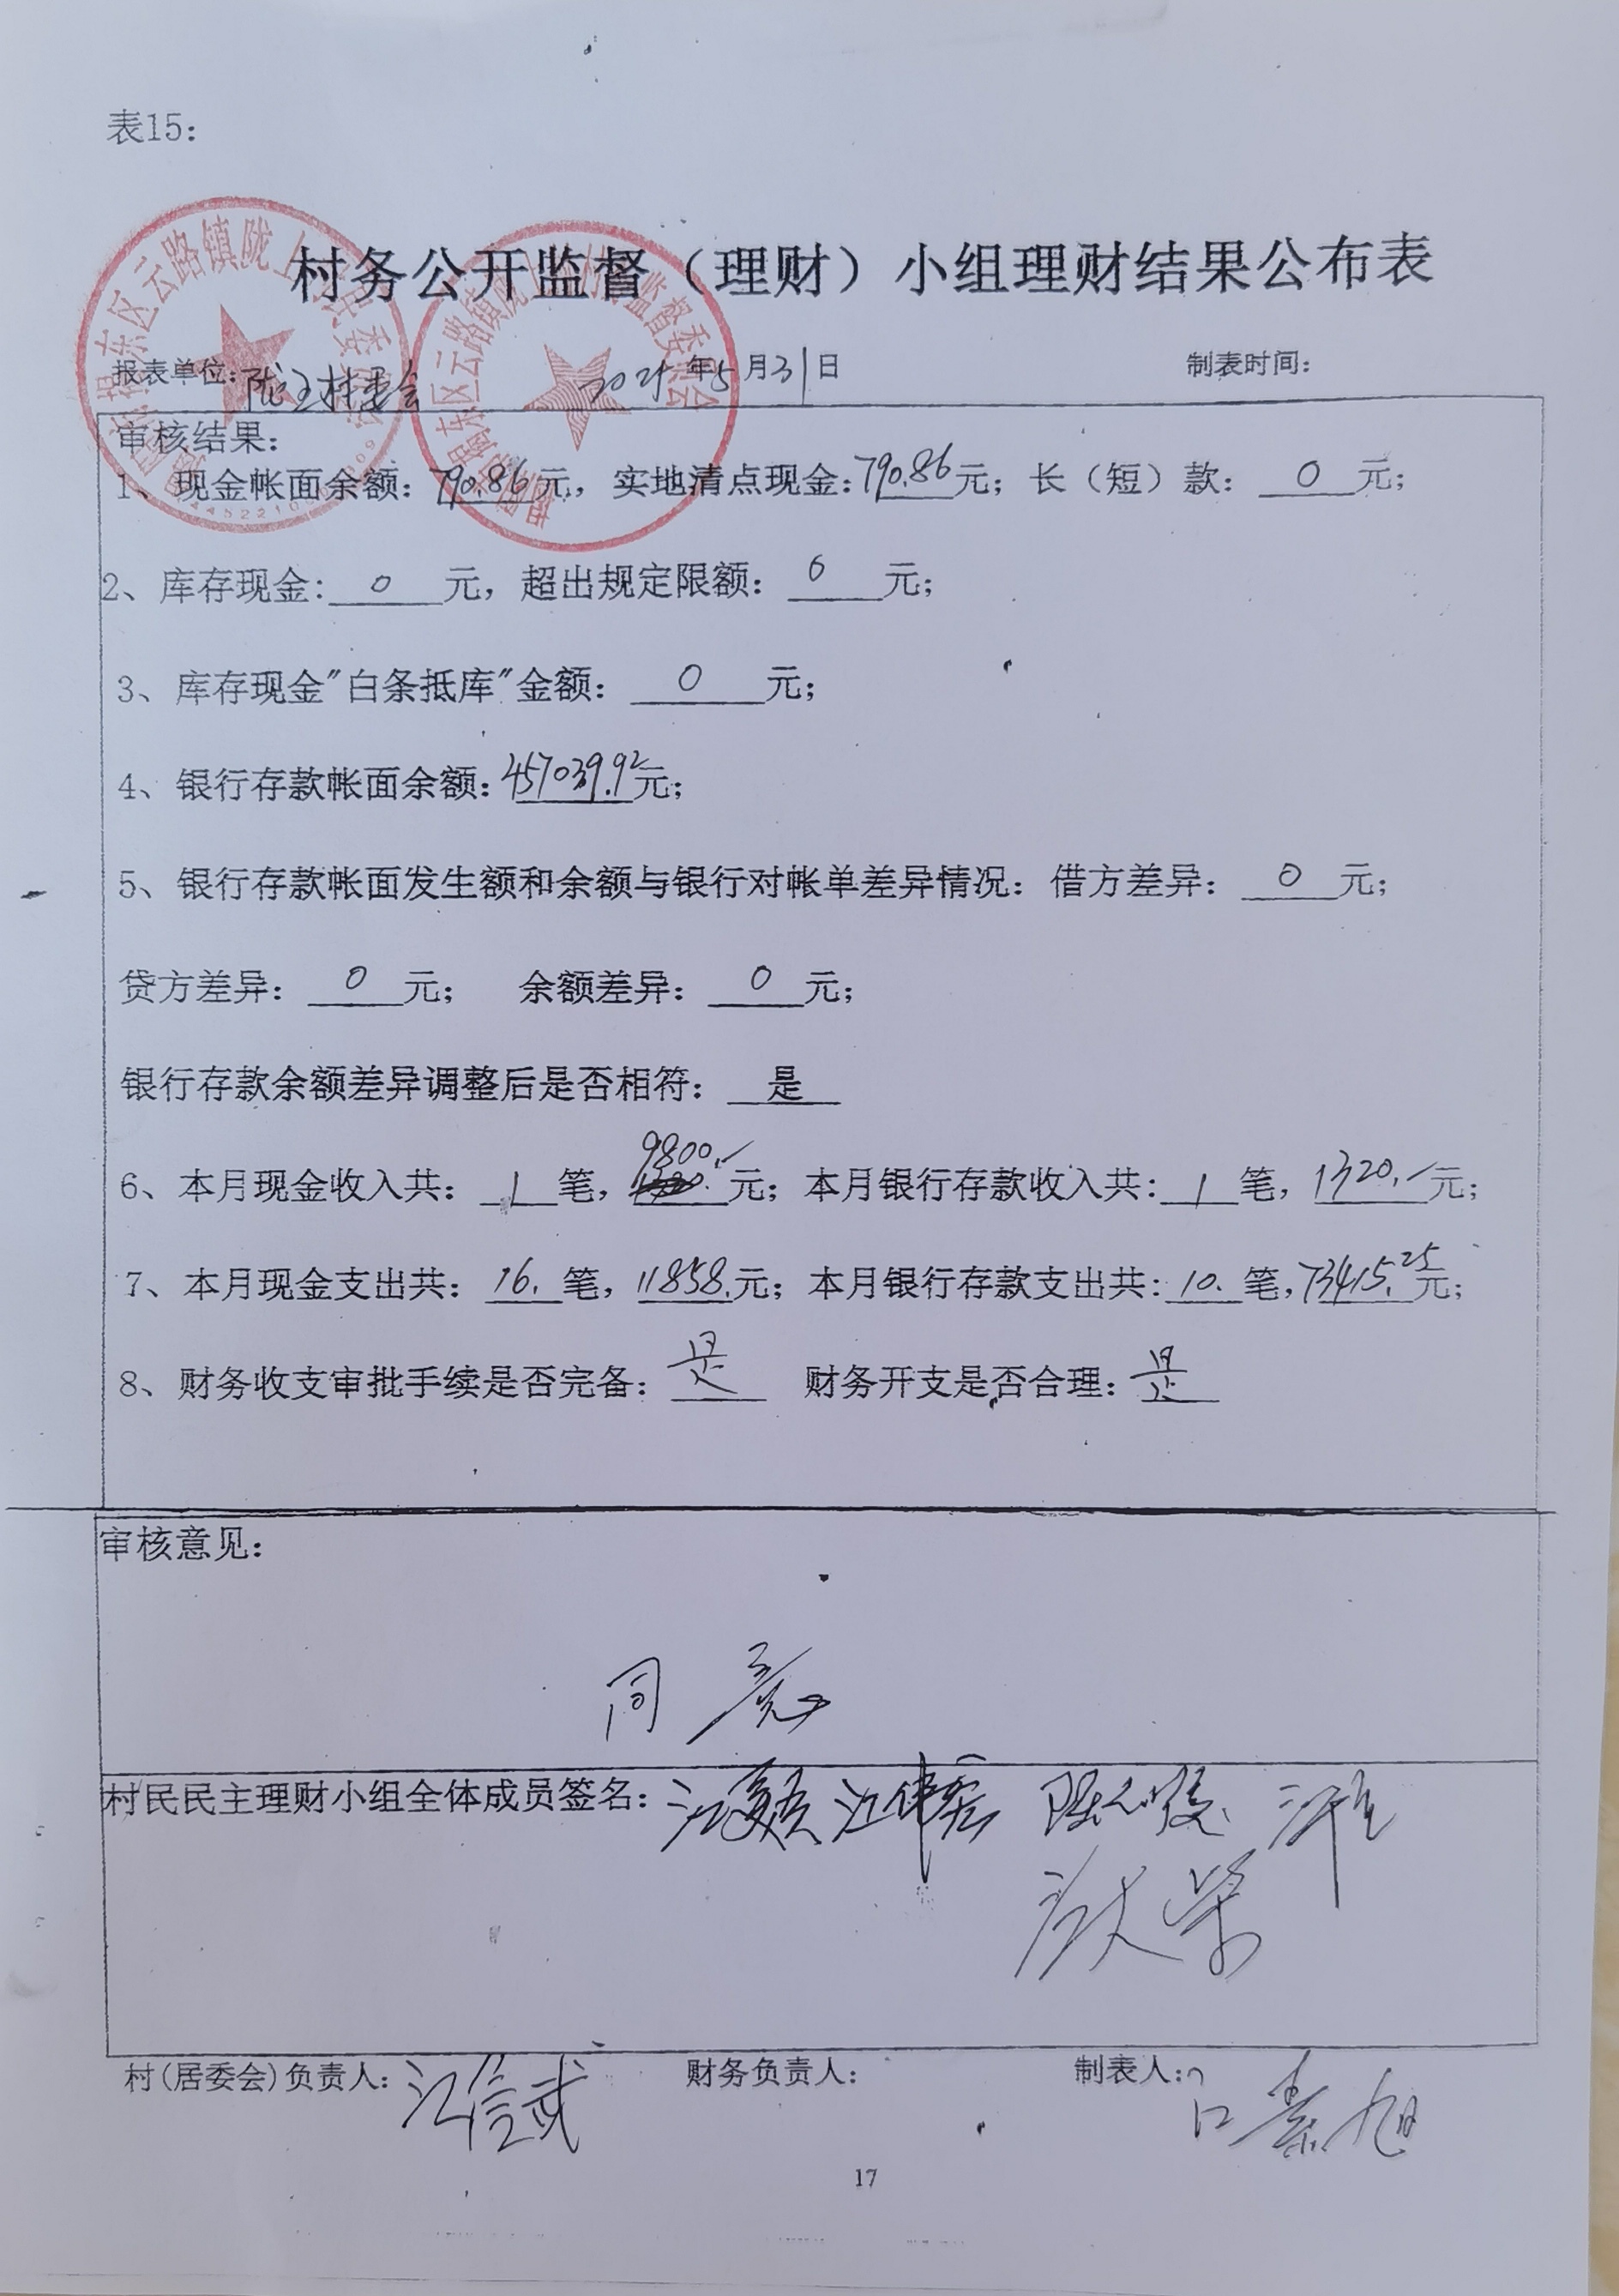 表15：
村务公开监督（理财）小组理财结果公布表
报表单位：陇上村委会 2021年5月31日 制表时间：
审核结果：
1、现金帐面余额：790.86元，实地清点现金：790.86元；长（短）款：0元；
2、库存现金：0元，超出规定限额：0元；
3、库存现金"白条抵库"金额：0元；
4、银行存款帐面余额：457039.92元；
5、银行存款帐面发生额和余额与银行对帐单差异情况：借方差异：0元；
贷方差异：0元；余额差异：0元；
银行存款余额差异调整后是否相符：是
6、本月现金收入共：1笔，9800.元；本月银行存款收入共：1笔，1320.元；
7、本月现金支出共：16.笔，11858.元；本月银行存款支出共：10.笔，73415.25元；
8、财务收支审批手续是否完备：是 财务开支是否合理：是
审核意见：
同意
村民民主理财小组全体成员签名：
村(居委会)负责人：江信武 财务负责人： 制表人：
17